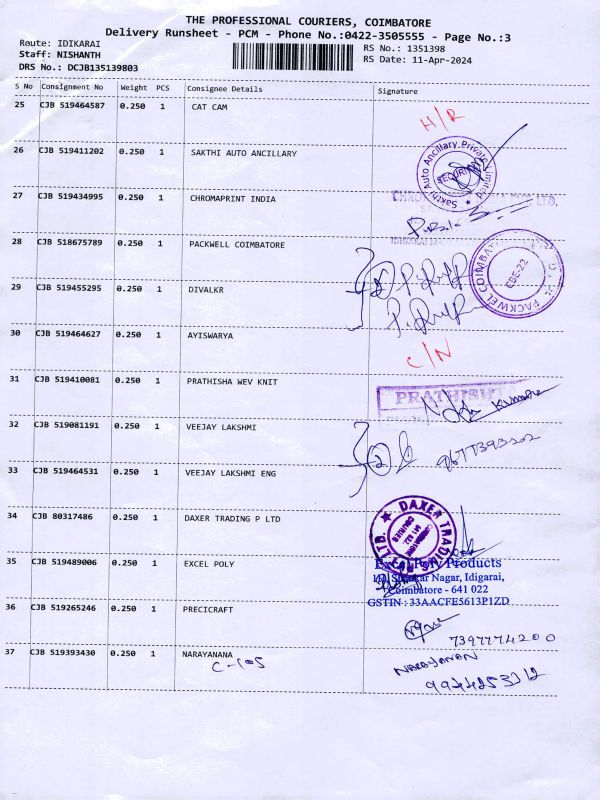 THE PROFESSIONAL COURIERS, COIMBATORE
Delivery Runsheet - PCM - Phone No.:0422-3505555 - Page No.:3
Route: IDIKARAI
RS No.: 1351398
Staff: NISHANTH
RS Date: 11-Apr-2024
DRS No.: DCJB135139803
S No Consignment No Weight PCS Consignee Details Signature
25 CJB 519464587 0.250 1 CAT CAM
H/R
26 CJB 519411202 0.250 1 SAKTHI AUTO ANCILLARY
Sakthi Auto Ancillary Private Limited
SECURITY
27 CJB 519434995 0.250 1 CHROMAPRINT INDIA
28 CJB 518675789 0.250 1 PACKWELL COIMBATORE
CBE-22
29 CJB 519455295 0.250 1 DIVALKR
30 CJB 519464627 0.250 1 AYISWARYA
C/N
31 CJB 519410081 0.250 1 PRATHISHA WEV KNIT
PRATHISHTA
Kumar
32 CJB 519081191 0.250 1 VEEJAY LAKSHMI
33 CJB 519464531 0.250 1 VEEJAY LAKSHMI ENG
34 CJB 80317486 0.250 1 DAXER TRADING P LTD
DAXER TRADING
35 CJB 519489006 0.250 1 EXCEL POLY
Excel Poly Products
Nagar, Idigarai,
Coimbatore - 641 022
GSTIN : 33AACFE5613P1ZD
36 CJB 519265246 0.250 1 PRECICRAFT
7397774200
37 CJB 519393430 0.250 1 NARAYANANA
C-105
NARAYANAN
9944253212